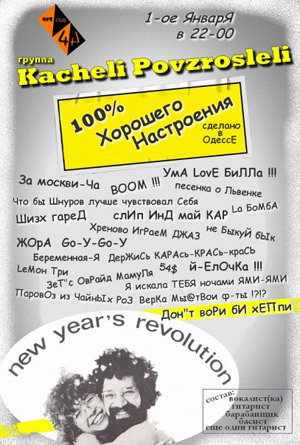 art club
44
1-ое ЯнварЯ
в 22-00
группа
Kacheli Povzrosleli
100%
Хорошего
Настроения
сделано
в
ОдессЕ
За москви-Ча
BOOM !!!
УмА LovE БиЛЛа !!!
песенка о Львенке
Что бы Шнуров лучше чувствовал Себя
Шизх гареД
слИп ИнД май КАР
La БоМбА
Хреново ИгРаеМ ДЖАЗ
не БыкуЙ бЫк
ЖОрА Go-У-Go-У
Беременная-Я
ДерЖиСь КАРАсь-КРАСь-краСЬ
LeМон Три
ЗеТ"с ОвРайд МамуЛя
54$
й-ЕлОчКа !!!
Я искала ТЕБЯ ночами ЯМИ-ЯМИ
ПаровОз из ЧайнЫх РоЗ
ВерКа Мы@тВои ф-ты !?!?
Дон"т воРи бИ хЕППи
new year's revolution
состав:
вокалист(ка)
гитарист
барабанщик
басист
еще один гитарист